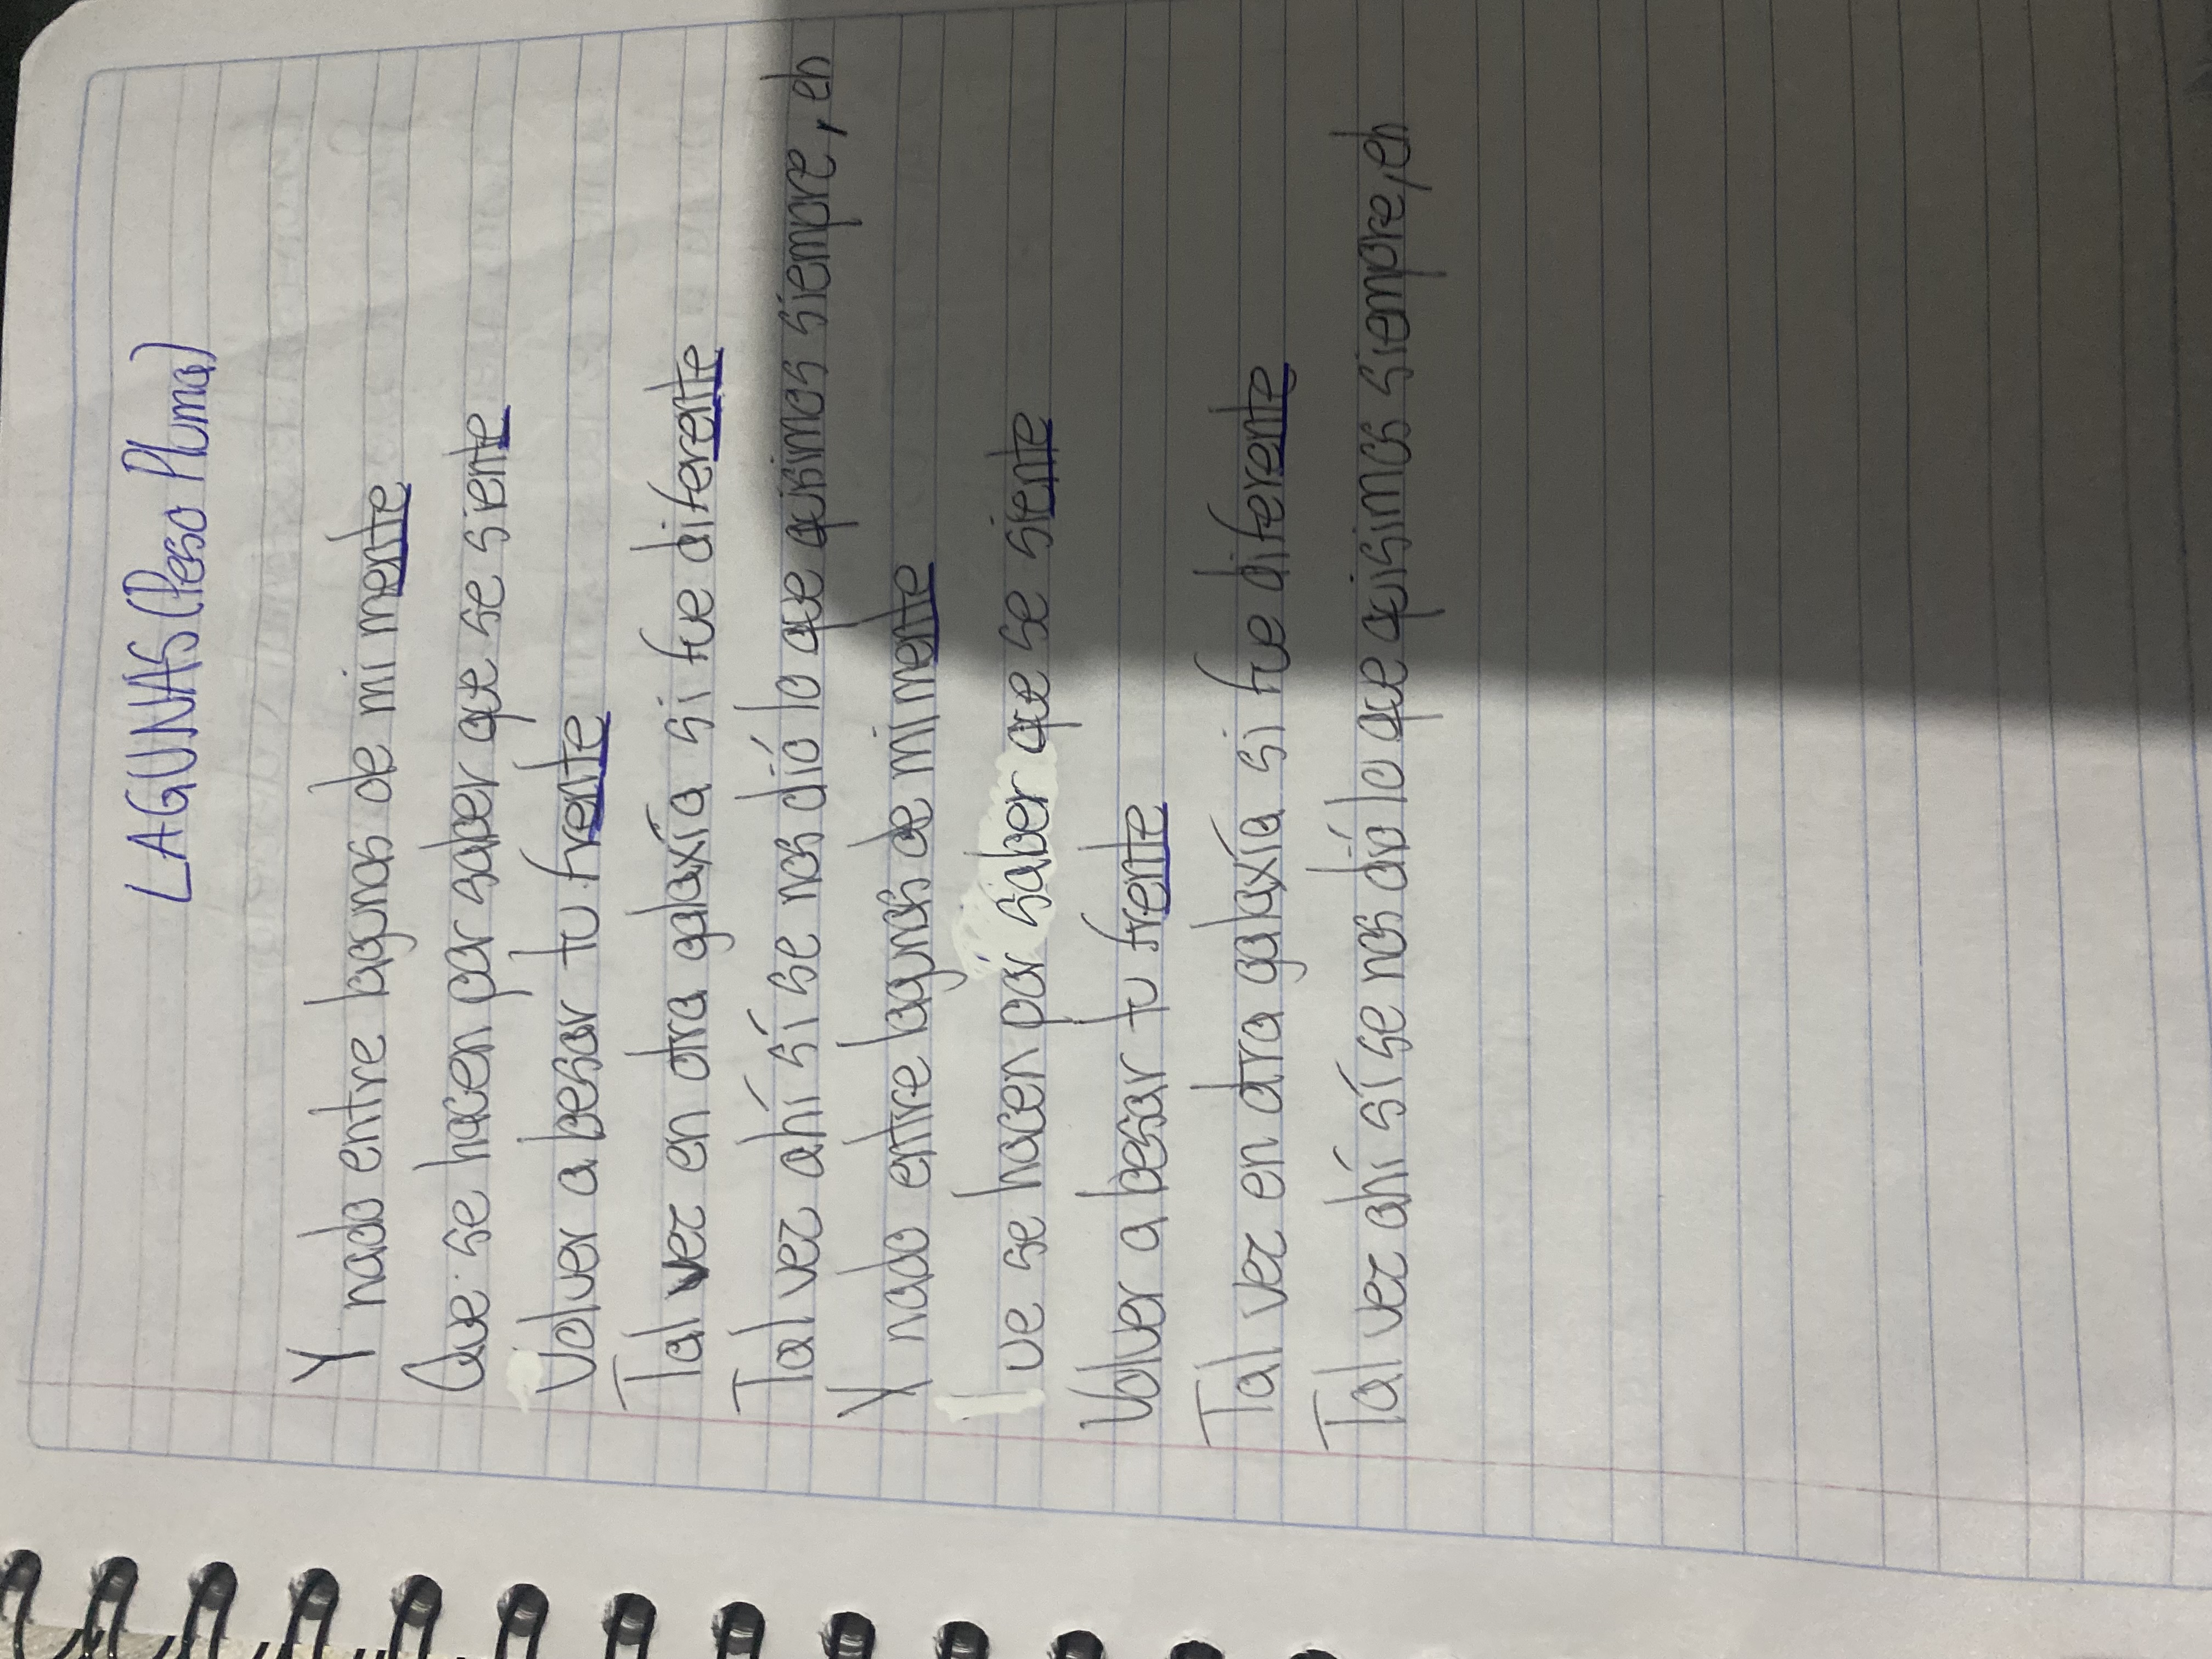 LAGUNAS (Peso Pluma)
Y nado entre lagunas de mi mente
Que se hacen por saber que se siente
Volver a besar tu frente
Tal vez en otra galaxía si fue diferente
Tal vez ahí sí se nos dió lo que quisimos siempre, eh
Y nado entre lagunas de mi mente
ue se hacen por saber que se siente
Volver a besar tu frente
Tal vez en otra galaxía si fue diferente
Tal vez ahí sí se nos dió lo que quisimos siempre, eh